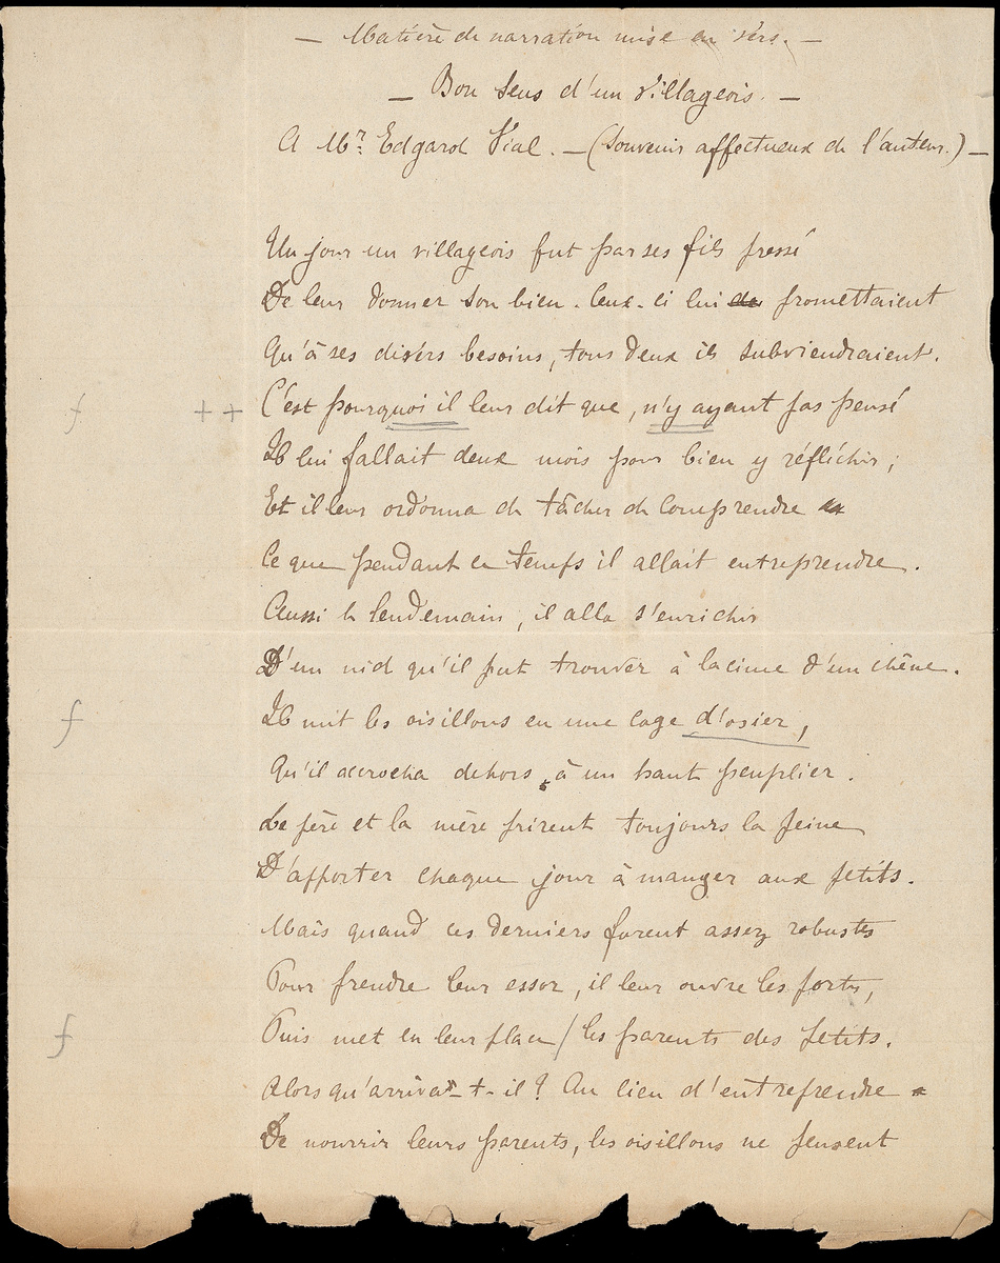 — Matière de narration mise en vers. —
— Bon sens d'un villageois. —
A Mr. Edgard Vial. — (Souvenir affectueux de l'auteur.) —
Un jour un villageois fut par ses fils pressé
De leur donner son bien. Ceux-ci lui de promettaient
Qu'à ses divers besoins, tous deux ils subviendraient.
f ++ C'est pourquoi il leur dit que, n'y ayant pas pensé
Il lui fallait deux mois pour bien y réfléchir ;
Et il leur ordonna de tâcher de comprendre
Ce que pendant ce temps il allait entreprendre.
Aussi le lendemain, il alla s'enrichir
D'un nid qu'il put trouver à la cime d'un chêne.
f Il mit les oisillons en une cage d'osier,
Qu'il accrocha dehors, à un haut peuplier.
Le père et la mère prirent toujours la peine
D'apporter chaque jour à manger aux petits.
Mais quand ces derniers furent assez robustes
Pour prendre leur essor, il leur ouvre les portes,
f Puis met en leur place / les parents des petits.
Alors qu'arriva-t-il ? Au lieu d'entreprendre
De nourrir leurs parents, les oisillons ne pensent